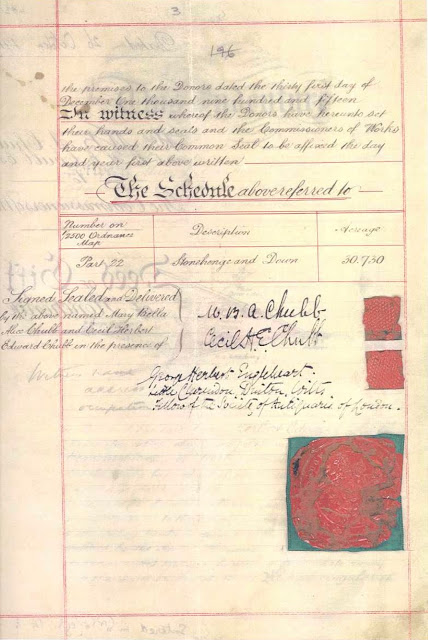 3
196
the premises to the Donors dated the thirty first day of
December One thousand nine hundred and fifteen
In witness whereof the Donors have hereunto set
their hands and seals and the Commissioners of Works
have caused their Common Seal to be affixed the day
and year first above written
The Schedule above referred to
Number on 2500 Ordnance Map Description Acreage
Part 22 Stonehenge and Down 30.730
Signed Sealed and Delivered
by the above named Mary Bella
Alice Chubb and Cecil Herbert
Edward Chubb in the presence of
M. B. A. Chubb
Cecil H. E. Chubb
George Herbert Engleheart
Little Clarendon, Dinton, Wilts
Fellow of the Society of Antiquaries of London.